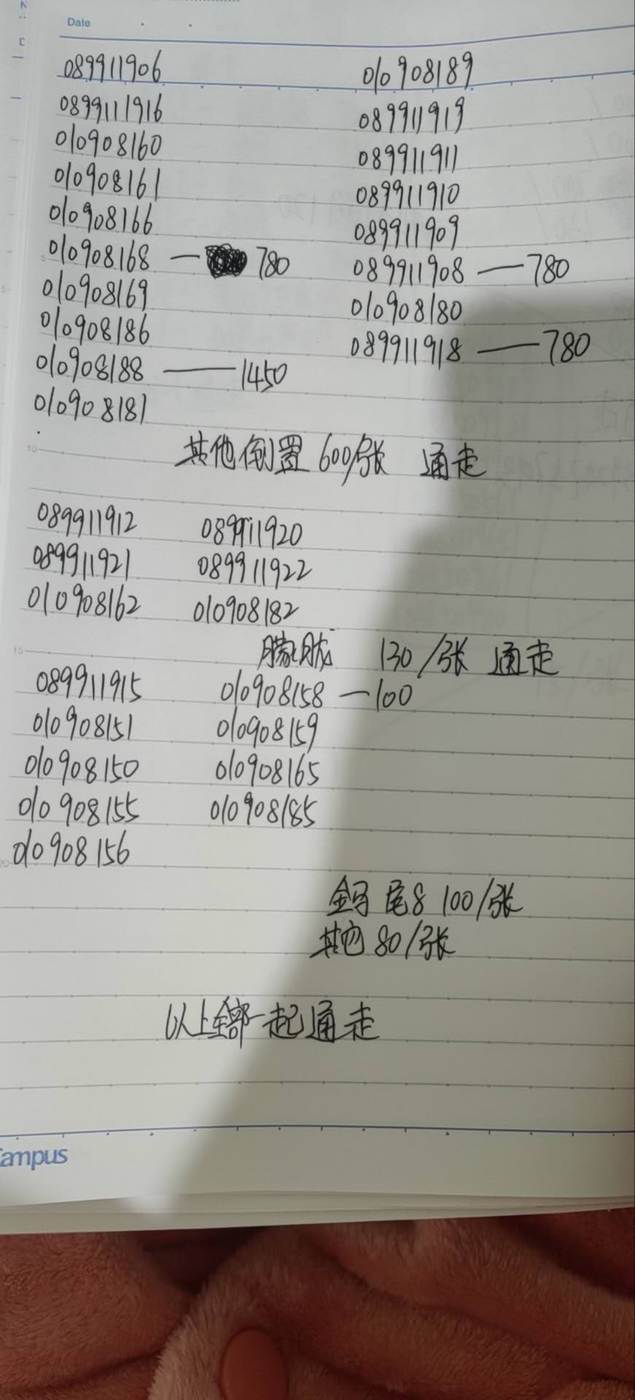 Date
089911906 010908189
0899111916 089911919
010908160 089911911
010908161 089911910
010908166 089911909
010908168 — 780 089911908 — 780
010908169 010908180
010908186 089911918 — 780
010908188 — 1450
010908181
其他倒置 600/张 通走
089911912 089911920
089911921 089911922
010908162 010908182
朦胧 130/张 通走
089911915 010908158 — 100
010908151 010908159
010908150 010908165
010908155 010908185
010908156
尾8 100/张
其它 80/张
以上全部一起通走
Campus